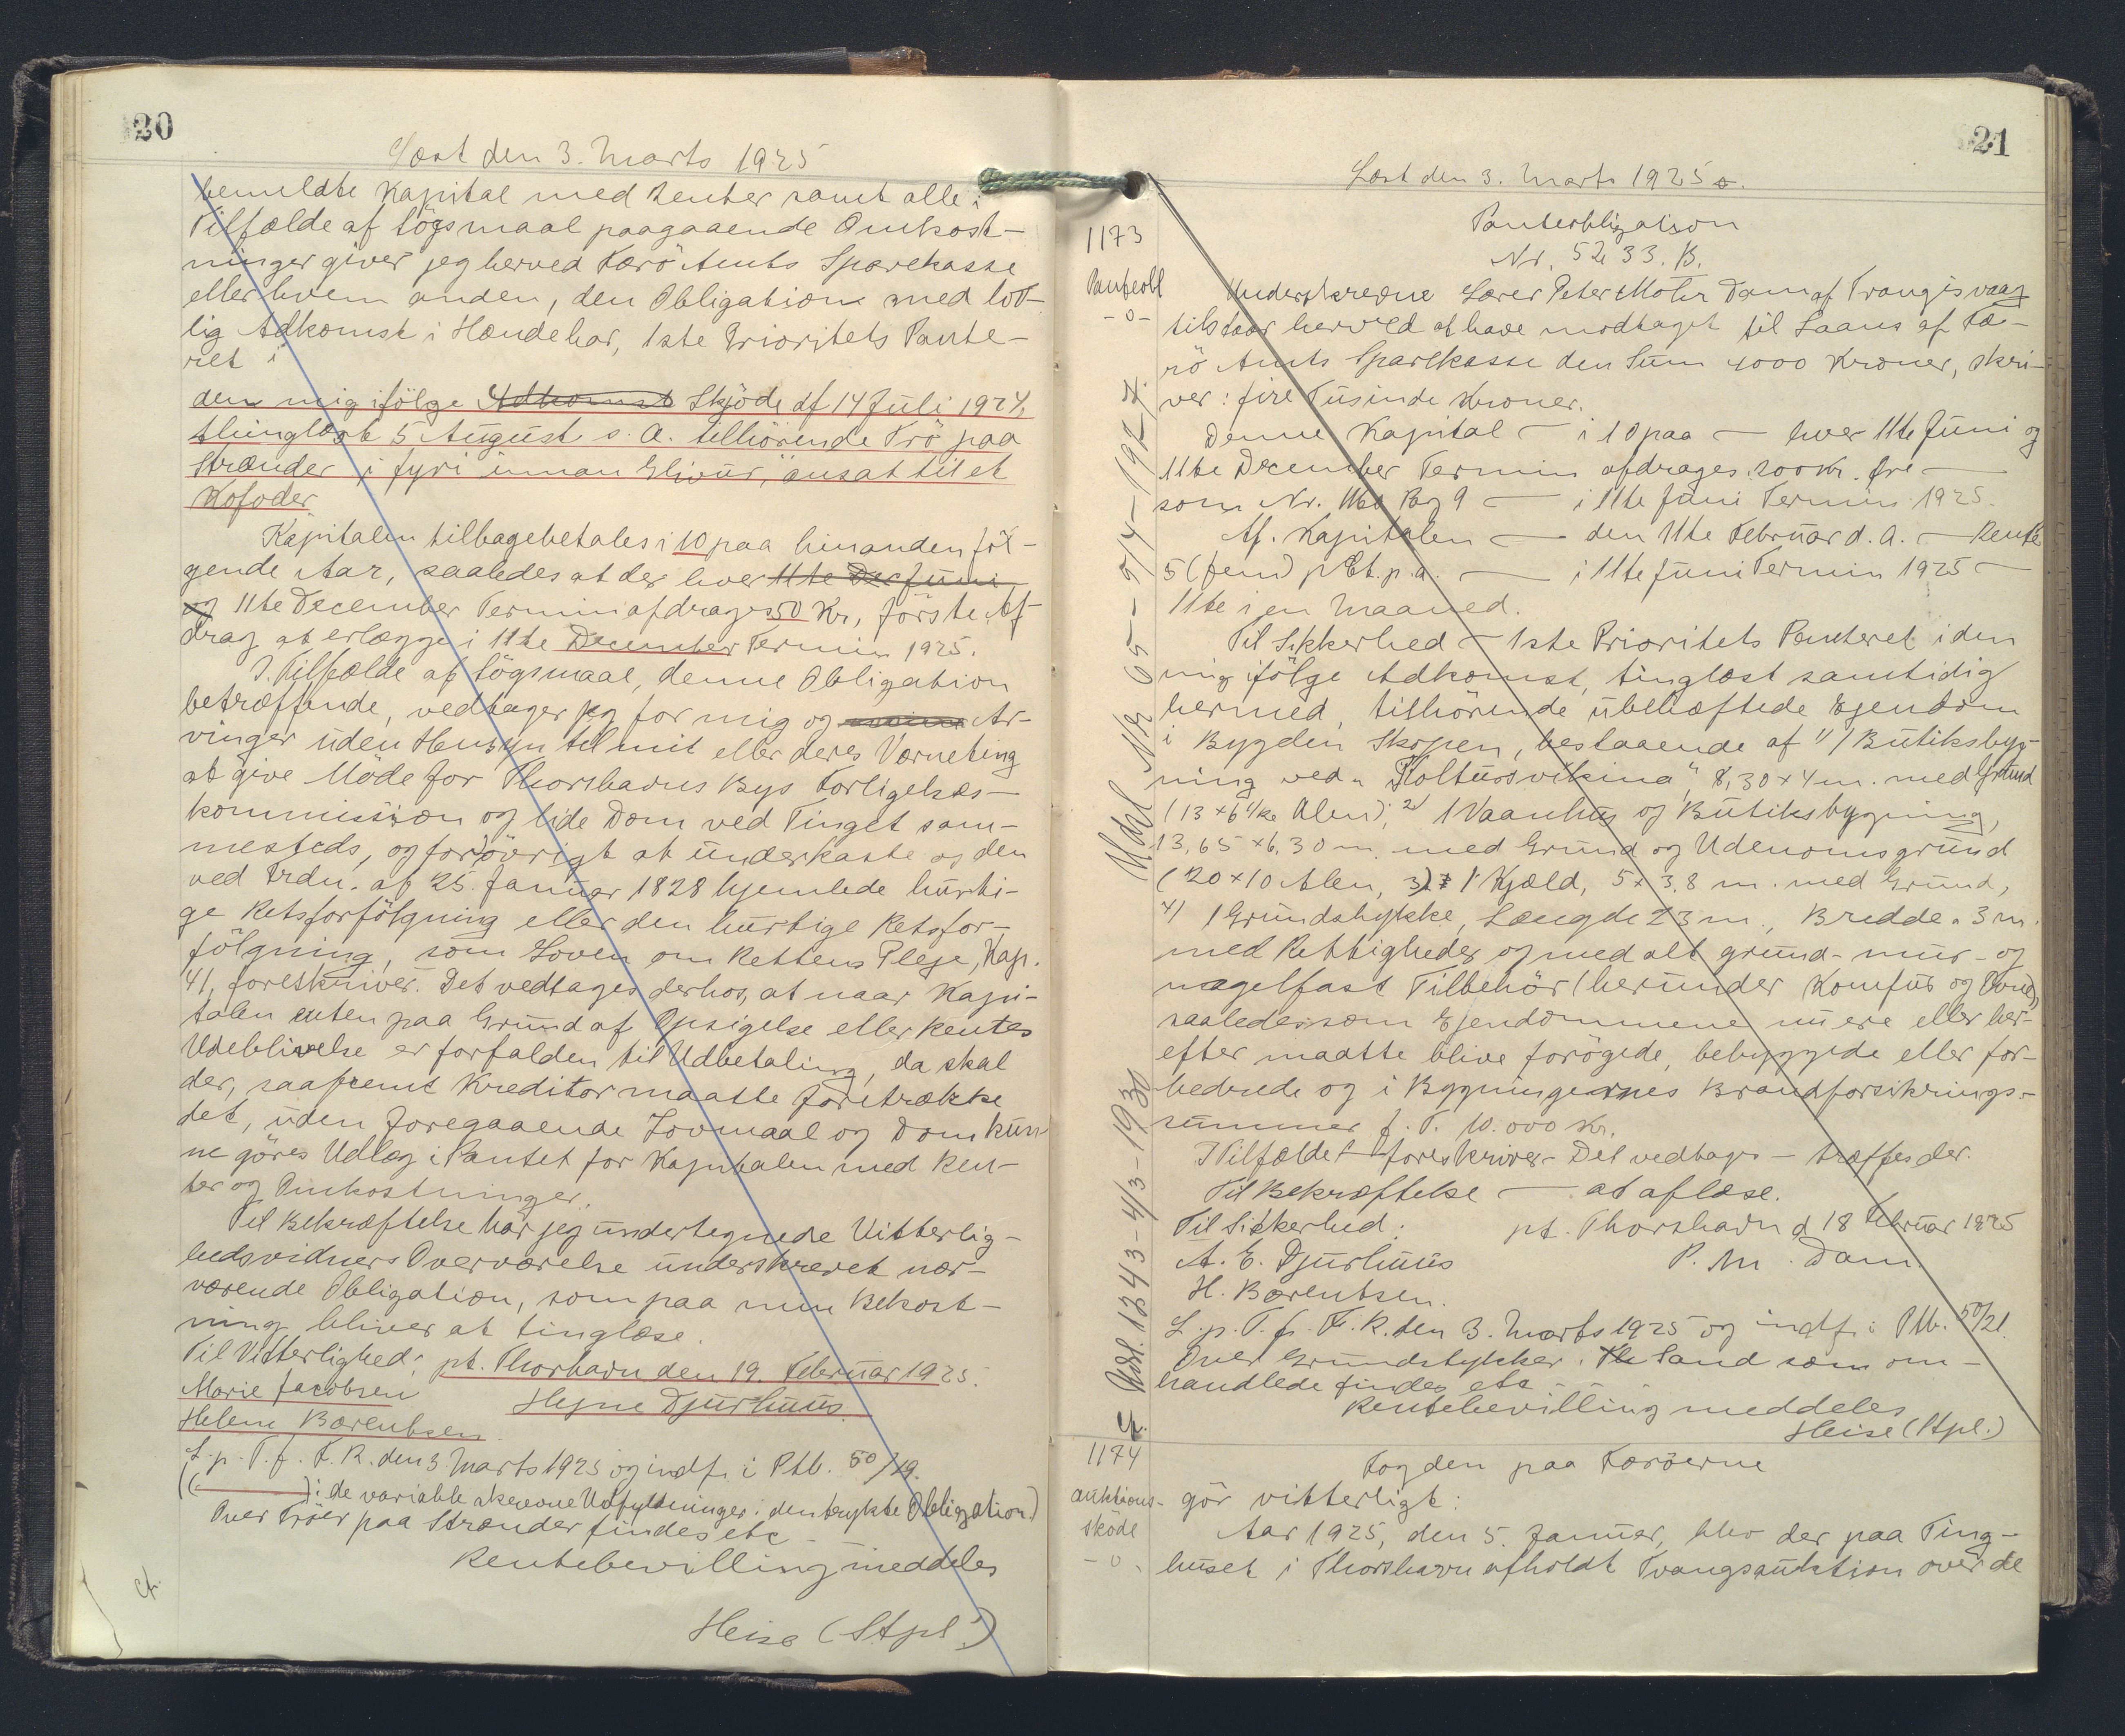 20
Læst den 3. Marts 1925
bemeldte Kapital med Renter samt alle i
Tilfælde af Lögsmaal paagaaende Omkost-
ninger giver jeg herved Færö Amts Sparekasse
eller hvem anden, den Obligation med lov-
lig Adkomst i Hænde har, 1ste Prioritets Pante-
ret i
den mig ifölge Adkomst Skjöde af 14 Juli 1924,
thinglæst 5 August s. A. tilhörende Trö paa
Strænder i Fyri innan Glivur, ansat til et
Kofoder
Kapitalen tilbagebetales i 10 paa hinanden föl-
gende Aar, saaledes at der hver 11te Dec Juni
og 11te December Termin afdrages 50 Kr, förste Af-
drag at erlægge i 11te December Termin 1925.
I Tilfælde af Lögsmaal, denne Obligation
betræffende, vedtager jeg for mig og mine Ar-
vinger uden Hensyn til mit eller deres Værneting
at give Möde for Thorshavns Bys Forligelses-
kommission og lide Dom ved Tinget sam-
mesteds, og forövrigt at underkaste os den
ved Frdn. af 25. Januar 1828 hjemlede hurti-
ge Retsforfölgning eller den hurtige Retsfor-
fölgning, som Loven om Rettens Pleje, Kap.
41, foreskriver. Det vedtages derhos, at naar Kapi-
talen enten paa Grund af Opsigelse eller Rentes
Udeblivelse er forfalden til Udbetaling, da skal
der, saafremt Kreditor maatte foretrække
det, uden foregaaende Lovmaal og Dom kun-
ne göres Udlæg i Pantet for Kapitalen med Ren-
ter og Omkostninger.
Til Bekræftelse har jeg undertegnede Vitterlig-
hedsvidners Overværelse underskrevet nær-
værende Obligation, som paa min Bekost-
ning bliver at tinglæse.
Til Vitterlighed: pt. Thorshavn den 19. Februar 1925.
Marie Jacobsen Hejne Djurhuus
Helene Bærentsen
L. p. T. f. F. R. den 3 Marts 1925 og indf. i Ptb. 50/19.
(( ): de variable skrevne Udfyldninger i den trykte Obligation)
Over Tröer paa Strænder findes etc
Rentebevilling meddeles
Heise (Stpl.)
cf.
21
Læst den 3. Marts 1925.
1173
Panteobl
-o-
Panteobligation
Nr. 5233. B.
Underskrevne Lærer Peter Mohr Dam af Trangisvaag
tilstaar herved at have modtaget til Laans af Fæ-
rö Amts Sparekasse den Sum 4000 Kroner, skri-
ver: fire Tusinde Kroner.
Denne Kapital — i 10 paa — hver 11te Juni og
11te December Termin afdrages 200 Kr. fri —
som Nr. 1160 Pag 9 — i 11te Juni Termin 1925.
Af Kapitalen — den 11te Februar d. A. — Rente
5 (fem) pCt. p. a. — i 11te Juni Termin 1925 —
11te i en Maaned.
Til Sikkerhed — 1ste Prioritets Panteret i den
mig ifölge Adkomst, tinglæst samtidig
hermed, tilhörende ubehæftede Ejendom
i Bygden Skopen, bestaaende af 1/ 1 Butiksbyg-
ning ved "Koltursvikina", 8,30 x 4 m. med Grund
(13 x 6 1/2 Alen); 2/ 1 Vaanhus og Butiksbygning,
13,65 x 6,30 m. med Grund og Udenomsgrund
(20 x 10 Alen, 3) 1 Kjæld, 5 x 3,8 m. med Grund,
4/ 1 Grundstykke, Længde 23 m., Bredde 3 m.
med Rettigheder og med alt grund- mur- og
nagelfast Tilbehör (herunder Komfur og Ovne),
saaledes som Ejendommene nu ere eller her-
efter maatte blive forögede, bebyggede eller for-
bedrede og i Bygningernes Brandforsikrings-
summer f. T. 10.000 Kr.
I Tilfælde — foreskriver — Det vedtages — træffes der.
Til Bekræftelse — at aflæse.
Til Sikkerhed: pt. Thorshavn d 18 Februar 1925
A. E. Djurhuus P. M. Dam.
H. Bærentsen.
L. p. T. f. F. R. den 3. Marts 1925 og indf. i Ptb. 50/21.
Over Grundstykker i Sand som om-
handlede findes etc
Rentebevilling meddeles
Heise (Stpl.)
cf.
1174
Auktions-
sköde
-o-
Fogden paa Færöerne
gör vitterligt:
Aar 1925, den 5. Januar, blev der paa Ting-
huset i Thorshavn afholdt Tvangsauktion over de